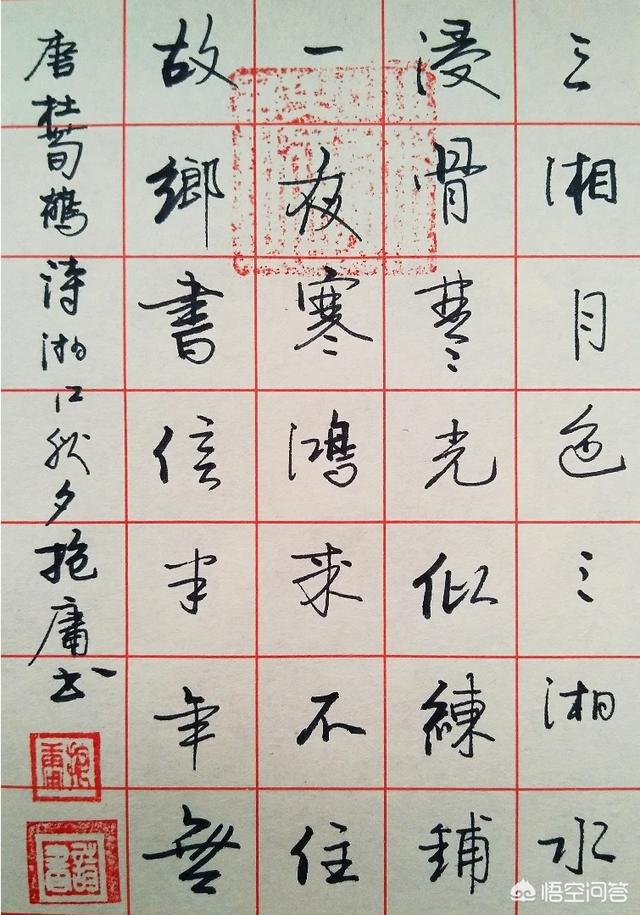 三湘月色三湘水
浸骨寒光似練鋪
一夜寒鴻来不住
故鄉書信半年無
唐杜荀鶴詩湘江秋夕抱庸书
悟空问答